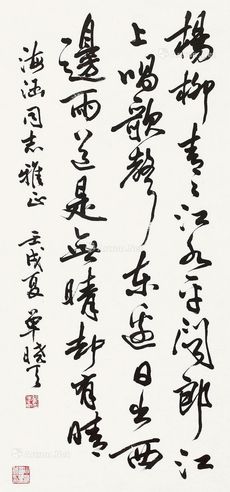 楊柳青々江水平闻郎江
上唱歌聲东邊日出西
邊雨道是無晴却有晴
海涵同志雅正 壬戌夏 單曉天